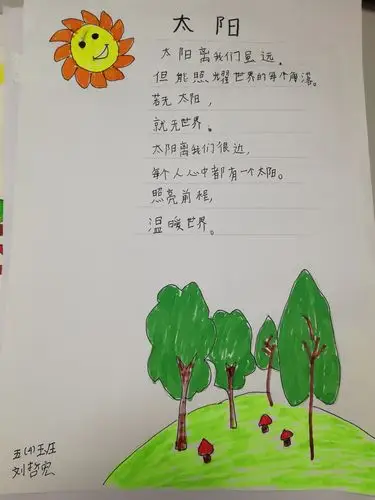 太阳
太阳离我们虽远，
但能照耀世界的每个角落。
若无太阳，
就无世界。
太阳离我们很近，
每个人心中都有一个太阳。
照亮前程，
温暖世界。
五(4)王庄
刘哲宏